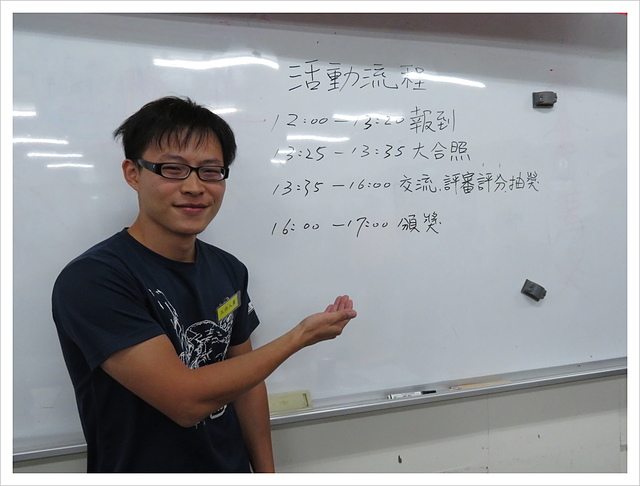 活動流程
12:00 - 13:20 報到
13:25 - 13:35 大合照
13:35 - 16:00 交流、評審評分、抽獎
16:00 - 17:00 頒獎